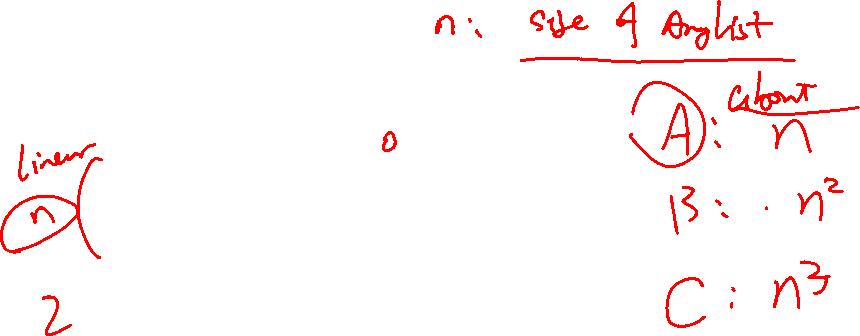 n: size of ArrayList
about
A: n
B: n²
C: n³
0
linear
n (
2